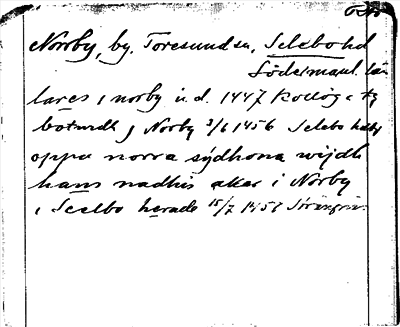 Norrby, by, Toresunds sn, Selebo hd
Södermanl. län
lares i norby u.d. 1447
boturdh j Norby 3/6 1456 Selebo
oppa norra sýdhona wijdh
hans nadhis aker i Norby
i Seelbo herade 15/7 1456